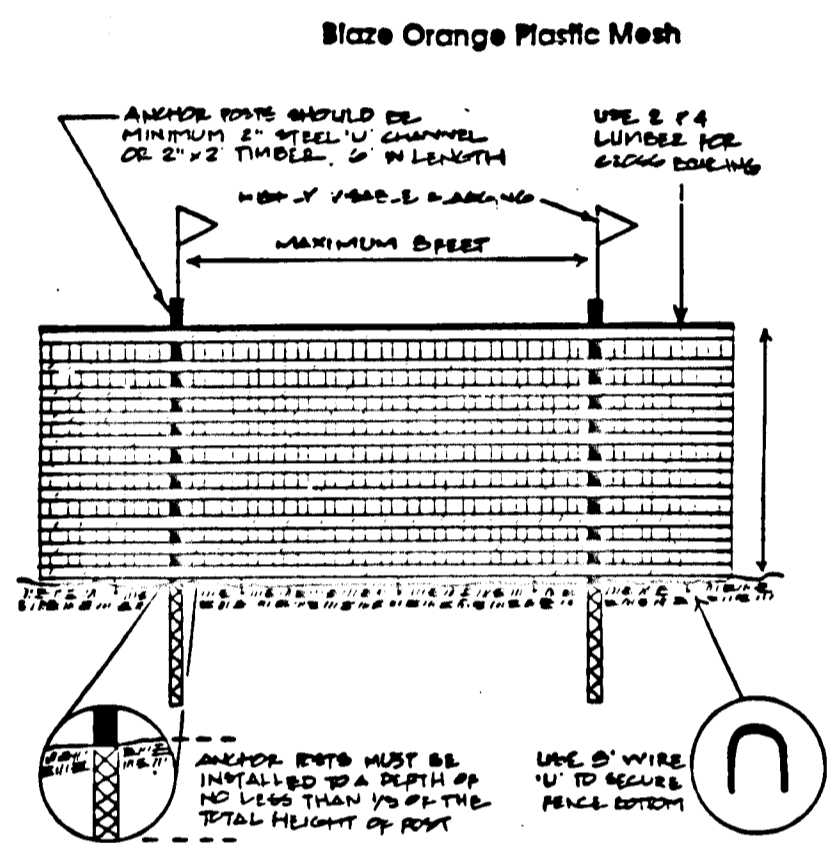 Blaze Orange Plastic Mesh
ANCHOR POSTS SHOULD BE
MINIMUM 2" STEEL 'U' CHANNEL
OR 2" x 2" TIMBER, 6' IN LENGTH
USE 2 x 4
LUMBER FOR
CROSS BRACING
HIGHLY VISIBLE FLAGGING
MAXIMUM 8 FEET
ANCHOR POSTS MUST BE
INSTALLED TO A DEPTH OF
NO LESS THAN 1/3 OF THE
TOTAL HEIGHT OF POST
USE 8" WIRE
'U' TO SECURE
FENCE BOTTOM